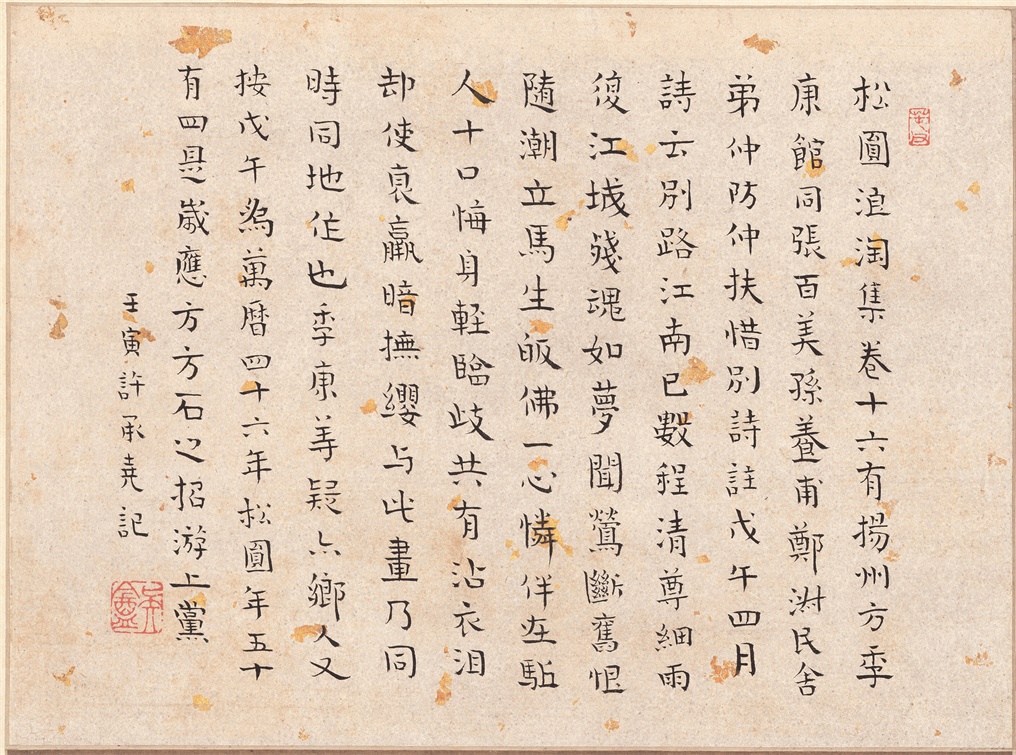 松圓浪淘集卷十六有揚州方季
康館同張百美孫養甫鄭澍民舍
弟仲防仲扶惜別詩註戊午四月
詩云別路江南已數程清尊細雨
復江城殘魂如夢聞鶯斷舊恨
隨潮立馬生皈佛一心憐伴在
人十口悔身輕臨歧共有沾衣泪
却使哀羸暗撫纓与此畫乃同
時同地作也季康等疑亦鄉人又
按戊午為萬曆四十六年松圓年五十
有四是歲應方方石之招游上黨
壬寅許承堯記